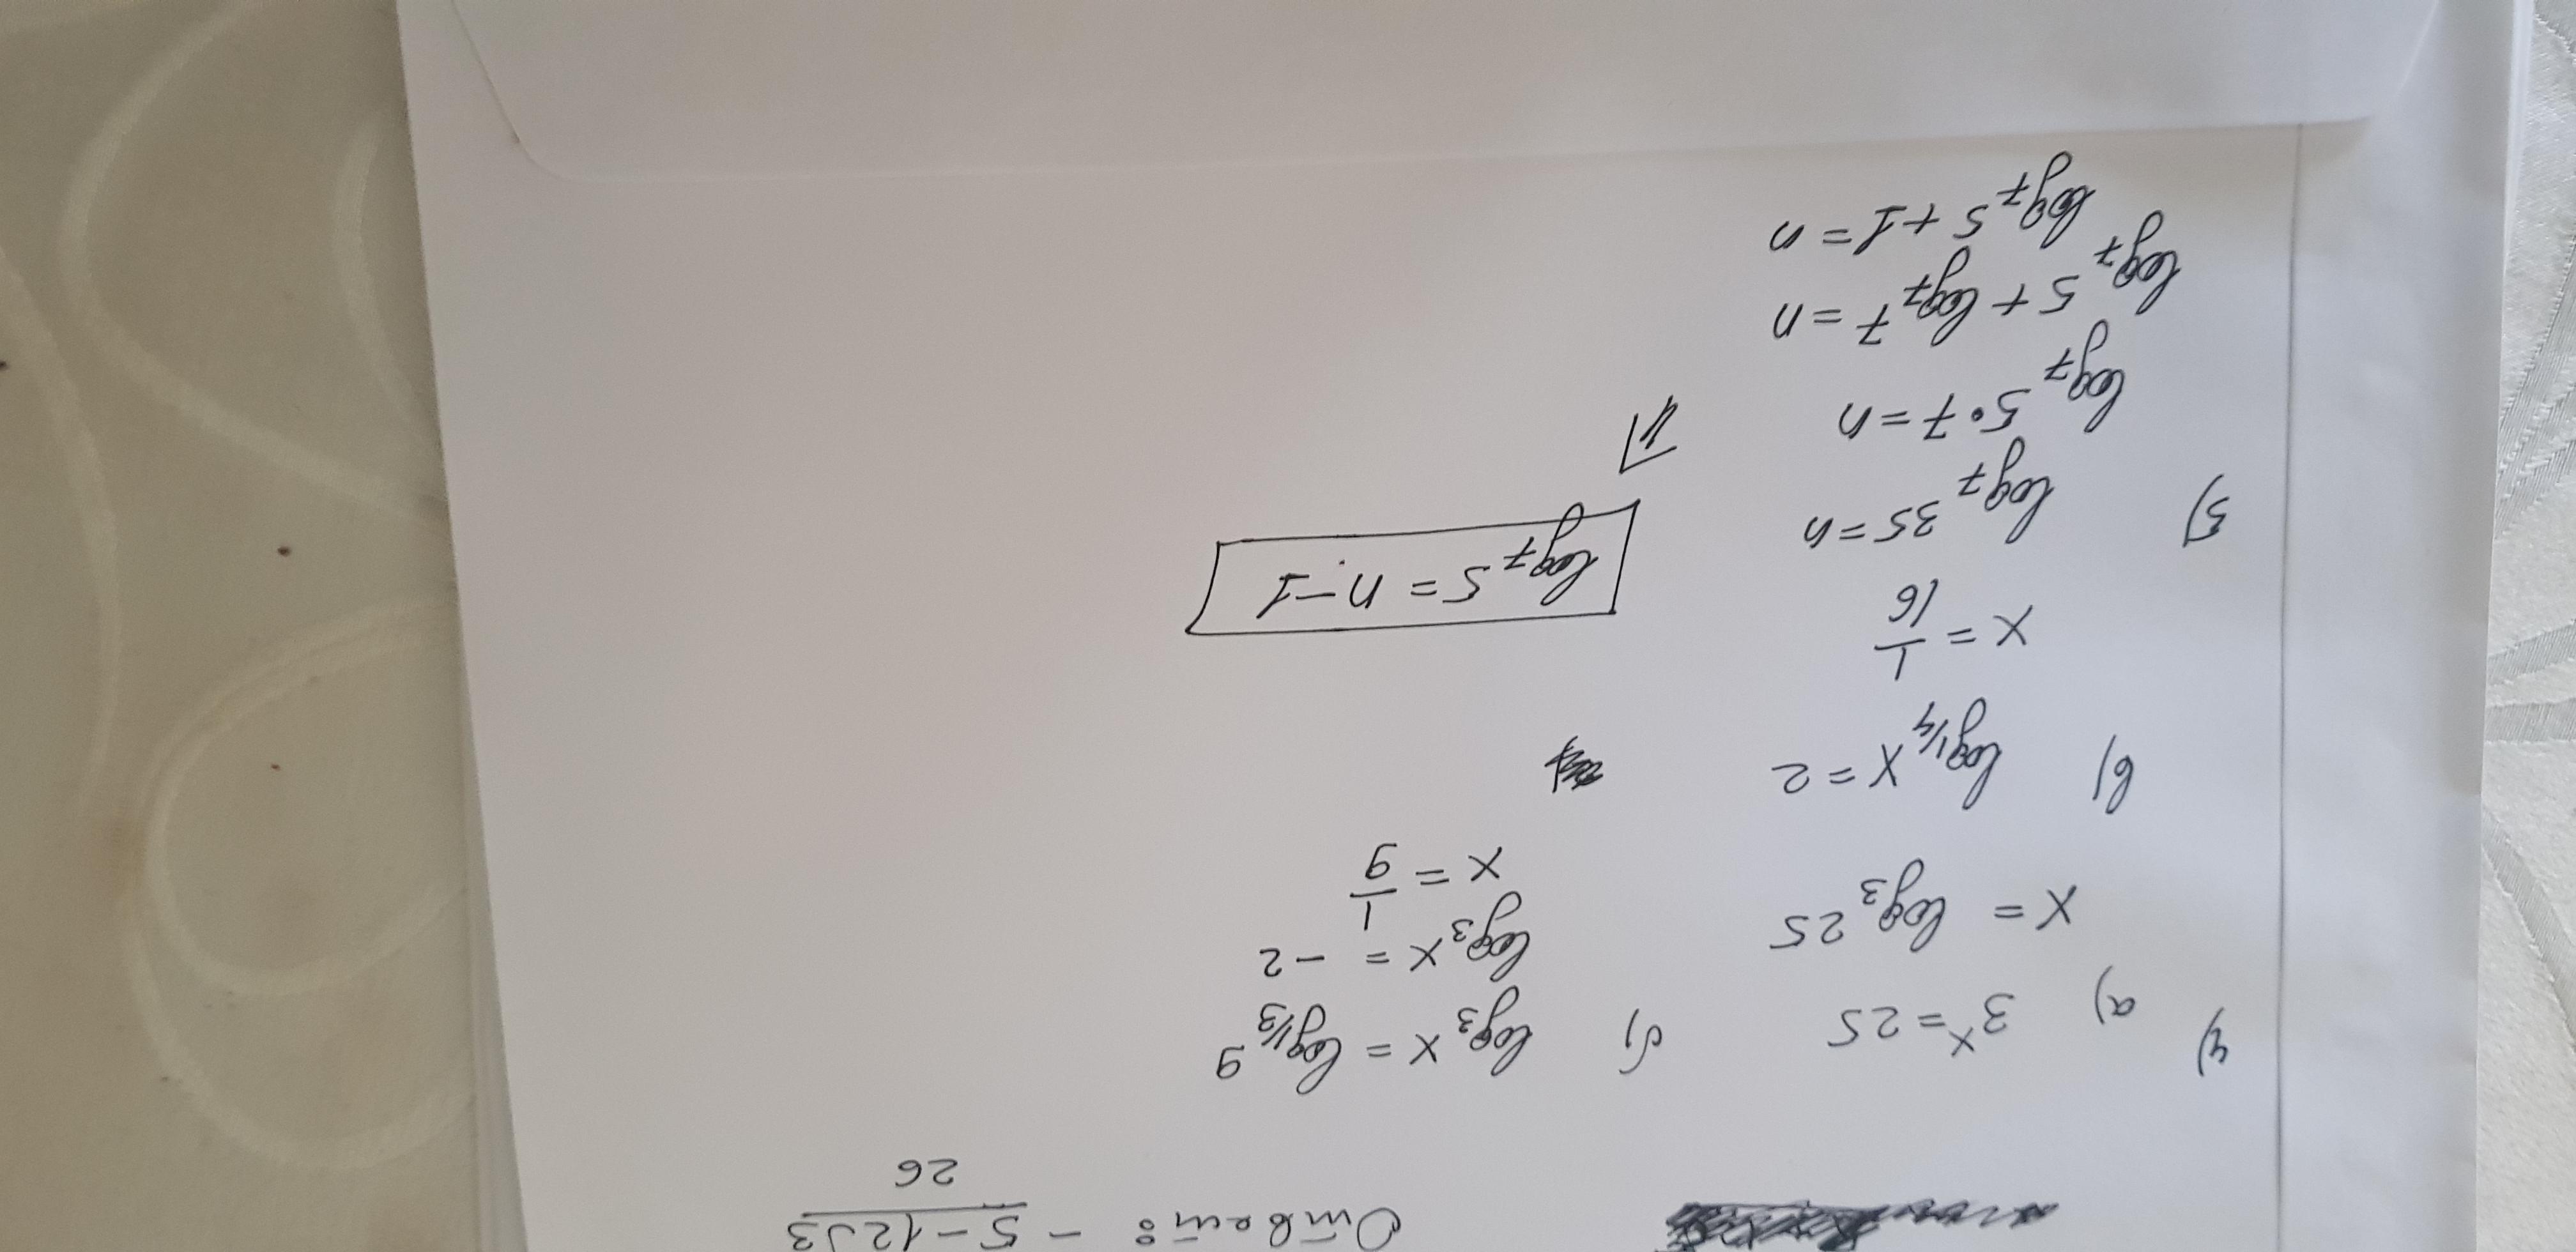 Ответ: - 5-12√3 / 26
4) а) 3^x = 25
x = log_3 25
б) log_3 x = log_1/3 9
log_3 x = -2
x = 1/9
в) log_1/4 x = 2
x = 1/16
5) log_7 35 = n
log_7 5•7 = n
log_7 5 + log_7 7 = n
log_7 5 + 1 = n
log_7 5 = n-1